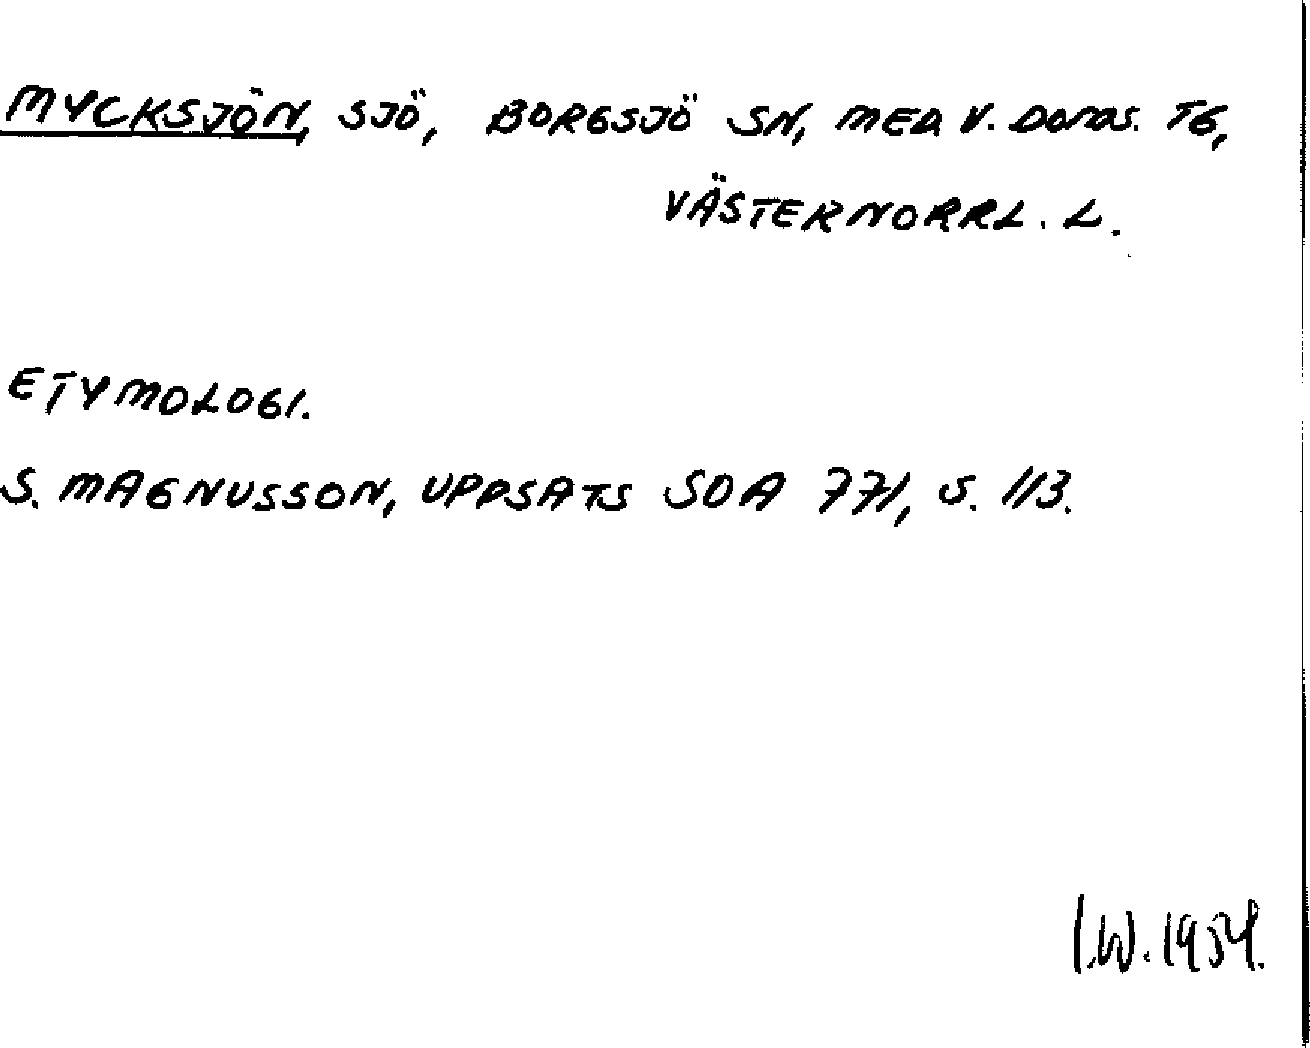 MYCKSJÖN, SJÖ, BORGSJÖ SN, MED V. DOMS. TG,
VÄSTERNORRL. L.
ETYMOLOGI.
S. MAGNUSSON, UPPSATS SOA 771, S. 113.
I.W. 1954.